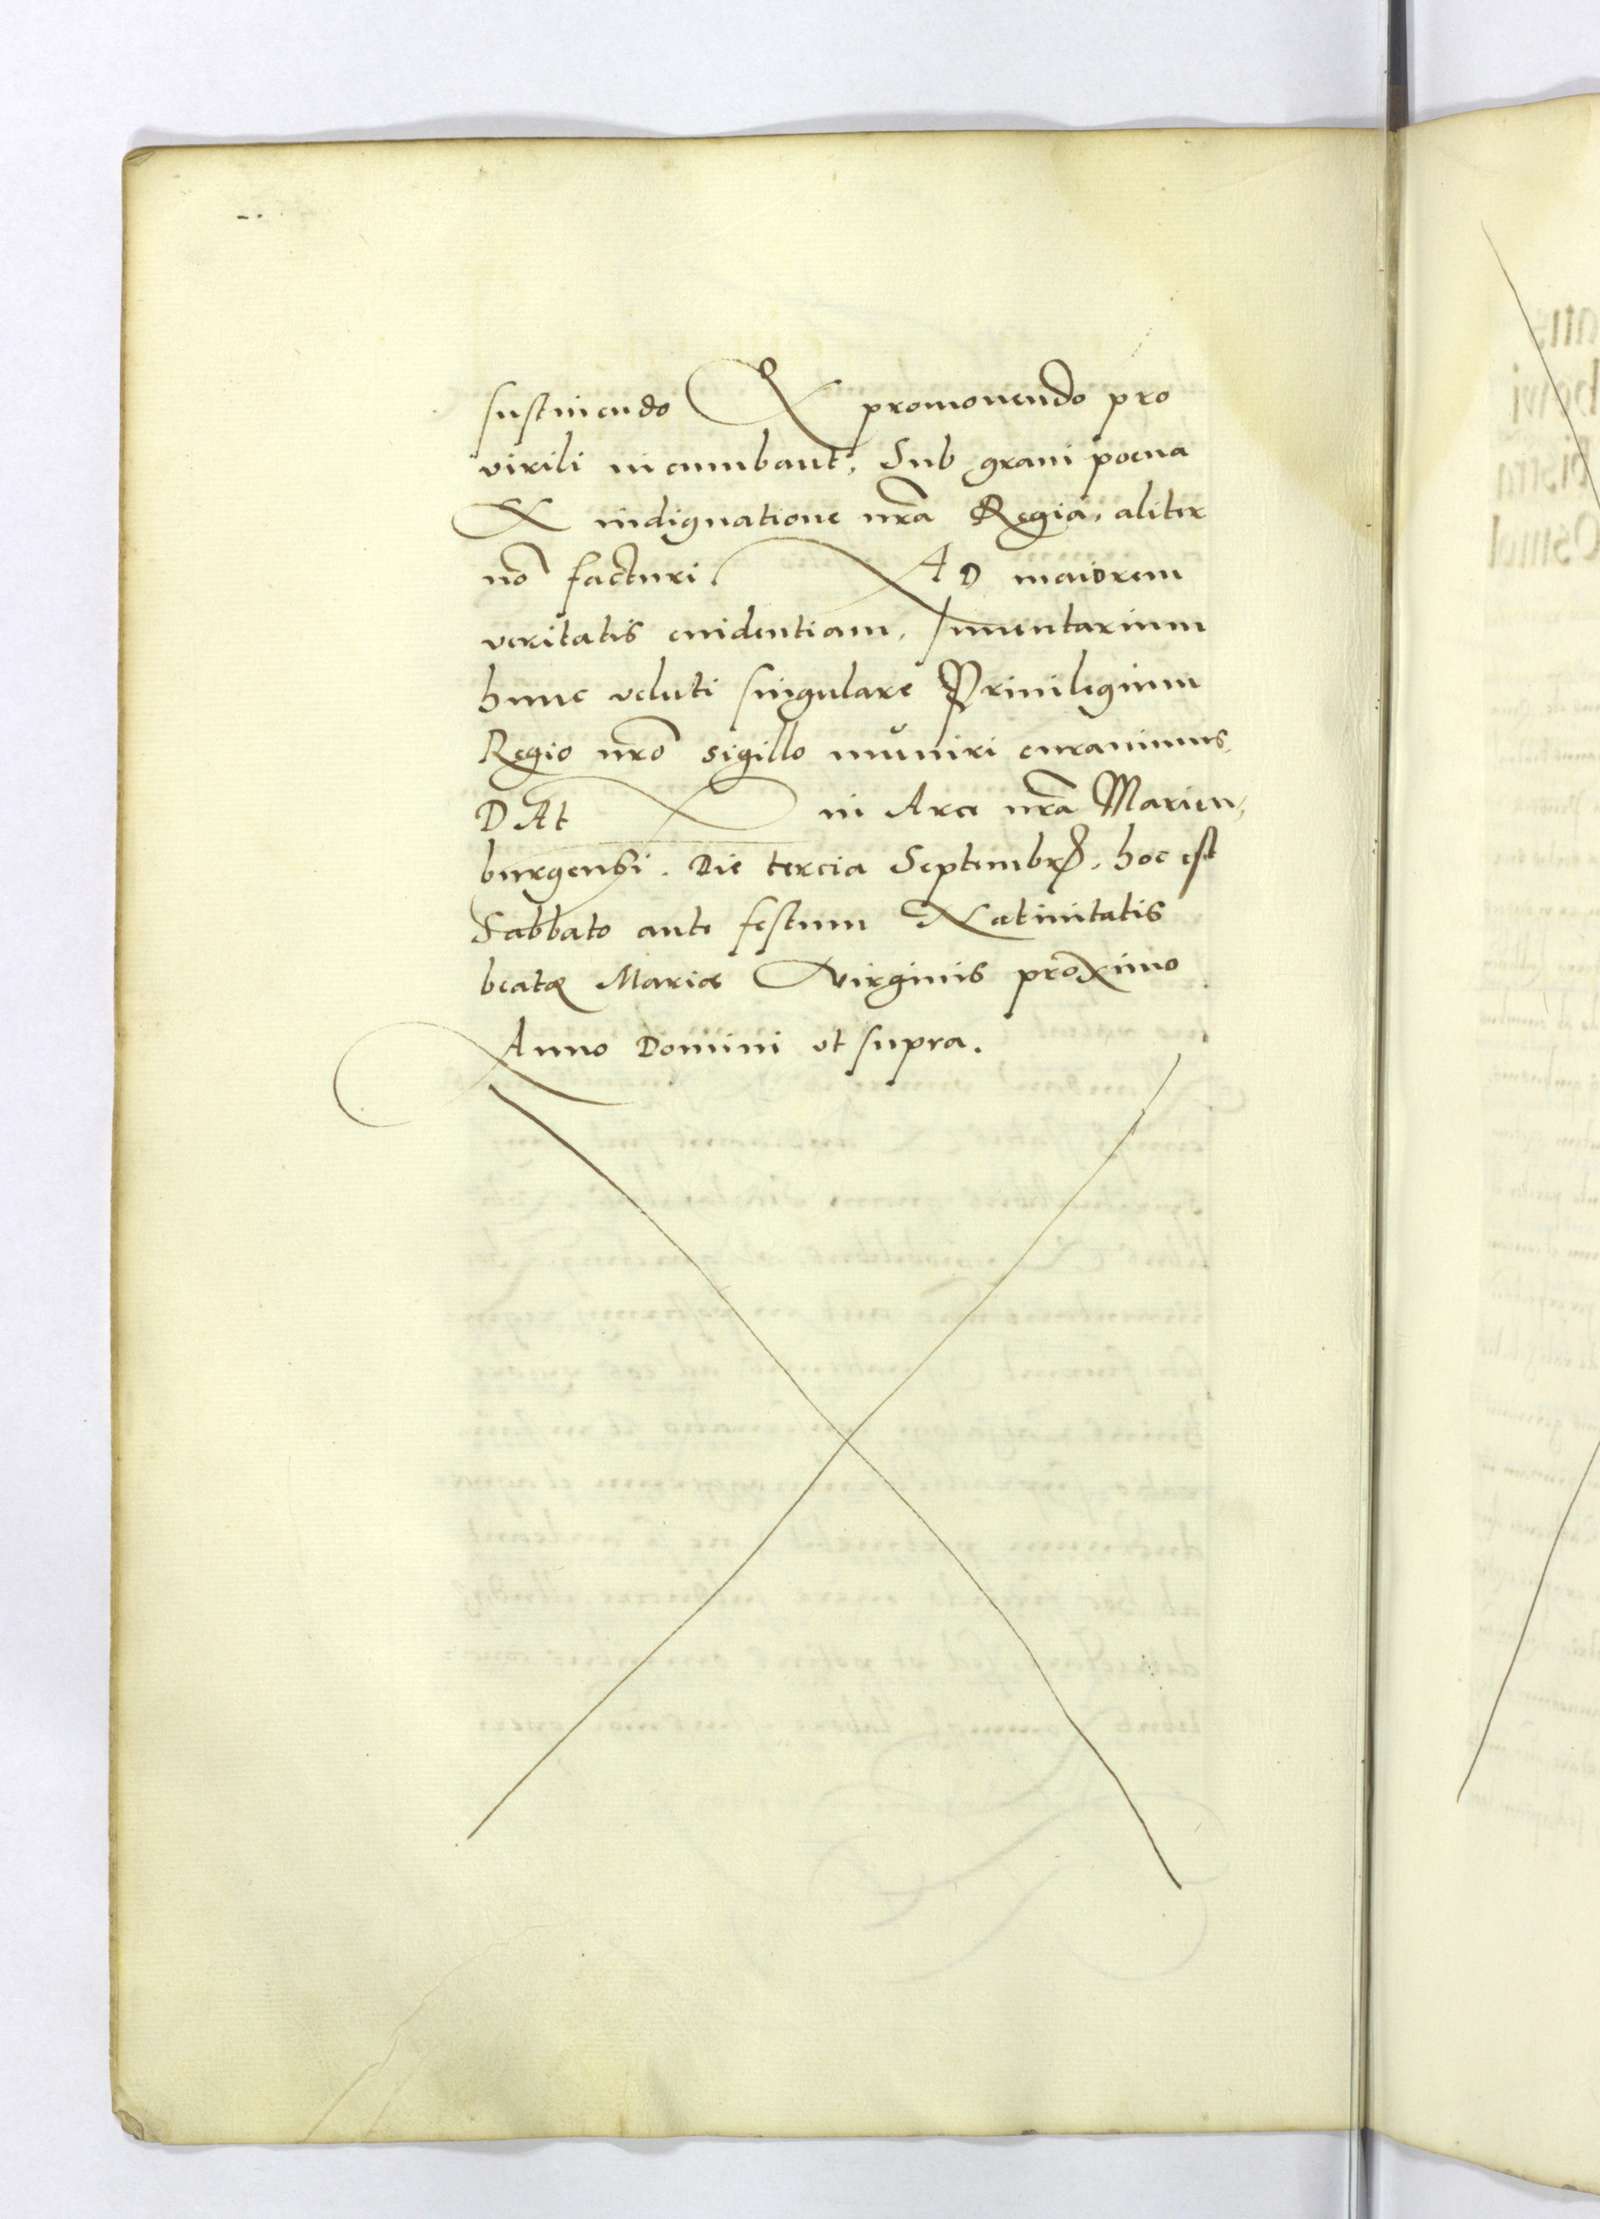 sustinendo & promouendo pro
virili incumbant, Sub graui poena
& indignatione nr̃a Regia, aliter
nõ facturi. AD maiorem
veritatis euidentiam, Inuentarium
hunc veluti singulare Priuilegium
Regio nrõ sigillo mŭniri curauimus.
DAt in Arce nr̃a Marien,
burgensi. Die tercia Septembr. hoc est
Sabbato ante festum Natiuitatis
beatę Mariæ Virginis proximo
Anno Domini vt supra.